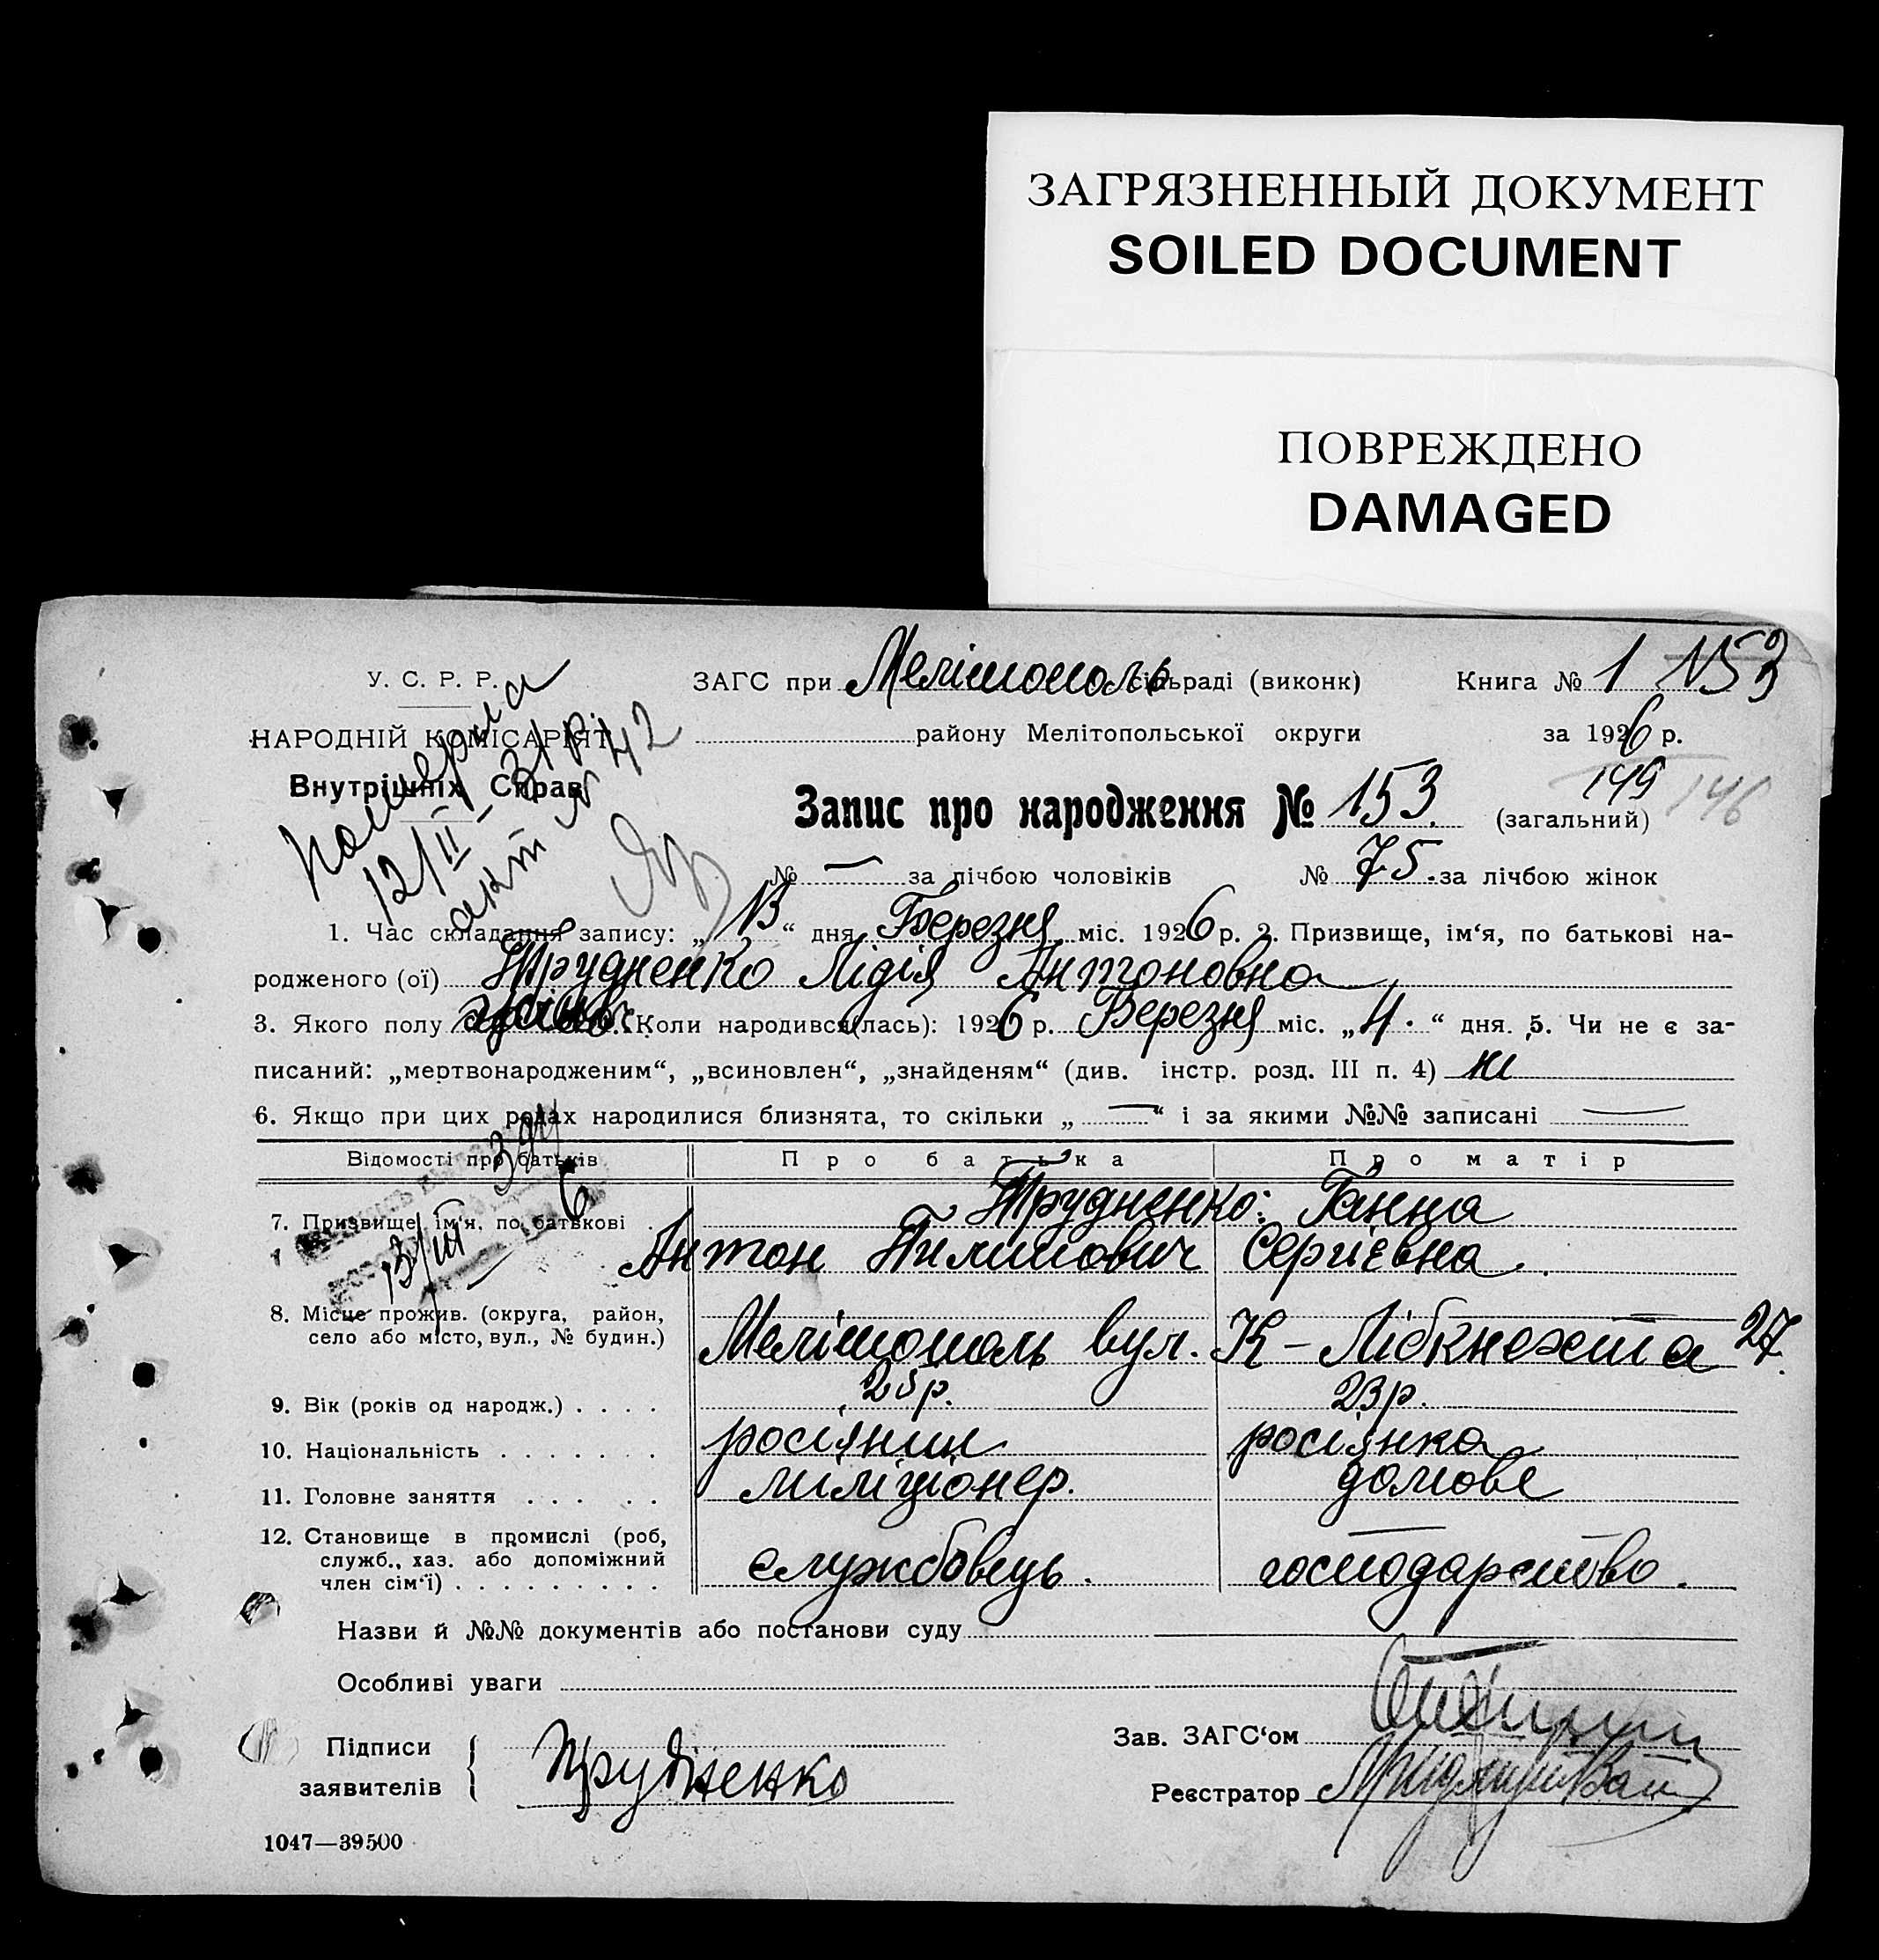 ЗАГРЯЗНЕННЫЙ ДОКУМЕНТ
SOILED DOCUMENT
ПОВРЕЖДЕНО
DAMAGED
У. С. Р. Р. ЗАГС при Мелітополь сільраді (виконк) Книга № 1 153
НАРОДНІЙ КОМІСАРІЯТ району Мелітопольської округи за 1926 р.
Внутрішніх Справ
померла
12/II - 31 р.
акт № 42
149 146
Запис про народження № 153. (загальний)
№ — за лічбою чоловіків № 75. за лічбою жінок
1. Час складання запису: „13“ дня Березня міс. 1926 р. 2. Призвище, ім‘я, по батькові на-
родженого (ої) Трудненко Лідія Антоновна
3. Якого полу жіноч. Коли народився (лась): 1926 р. Березня міс. „4.“ дня. 5. Чи не є за-
писаний: „мертвонародженим“, „всиновлен“, „знайденям“ (див. інстр. розд. III п. 4) ні
6. Якщо при цих родах народилися близнята, то скільки „—“ і за якими №№ записані —
Відомості про батьків Про батька Про матір
7. Призвище, ім‘я, по батькові . Трудненко: Ганна
Антон Пилипович Сергієвна.
13/III 6
8. Місце прожив. (округа, район,
село або місто, вул., № будин.) Мелітополь вул. К-Лібкнехта 27.
9. Вік (років од народж.) . . . . 25 р. 23 р.
10. Національність . . . . . . . росіянин росіянка
11. Головне заняття . . . . . міліціонер. домове
12. Становище в промислі (роб,
служб., хаз. або допоміжний
член сім‘ї) . . . . . . . . . службовець. господарство.
Назви й №№ документів або постанови суду
Особливі уваги
Підписи
заявителів { Трудненко
Зав. ЗАГС‘ом
Реєстратор
1047—39500